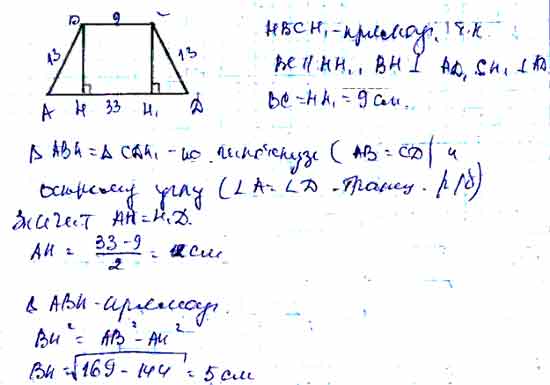 B 9 C
13 13
A H 33 H₁ D
HBCH₁ - прямоуг., т.к.
BC || HH₁, BH ⊥ AD, CH₁ ⊥ AD
BC = HH₁ = 9 см.
Δ ABH = Δ CDH₁ - по гипотенузе (AB = CD) и
острому углу (∠A = ∠D - трапец. р/б)
Значит AH = H₁D.
AH = (33 - 9)/2 = см
Δ ABH - прямоуг.
BH² = AB² - AH²
BH = √(169 - 144) = 5 см